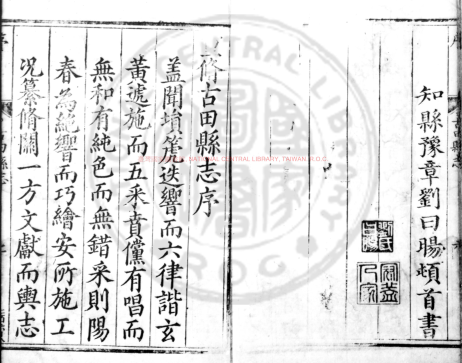 知縣豫章劉曰暘頓首書
脩古田縣志序
蓋聞塤箎迭響而六律諧玄
黃遞施而五采賁儻有唱而
無和有純色而無錯采則陽
春為絕響而巧繪安所施工
况纂脩關一方文獻而輿志
NATIONAL CENTRAL LIBRARY, TAIWAN, R.O.C.